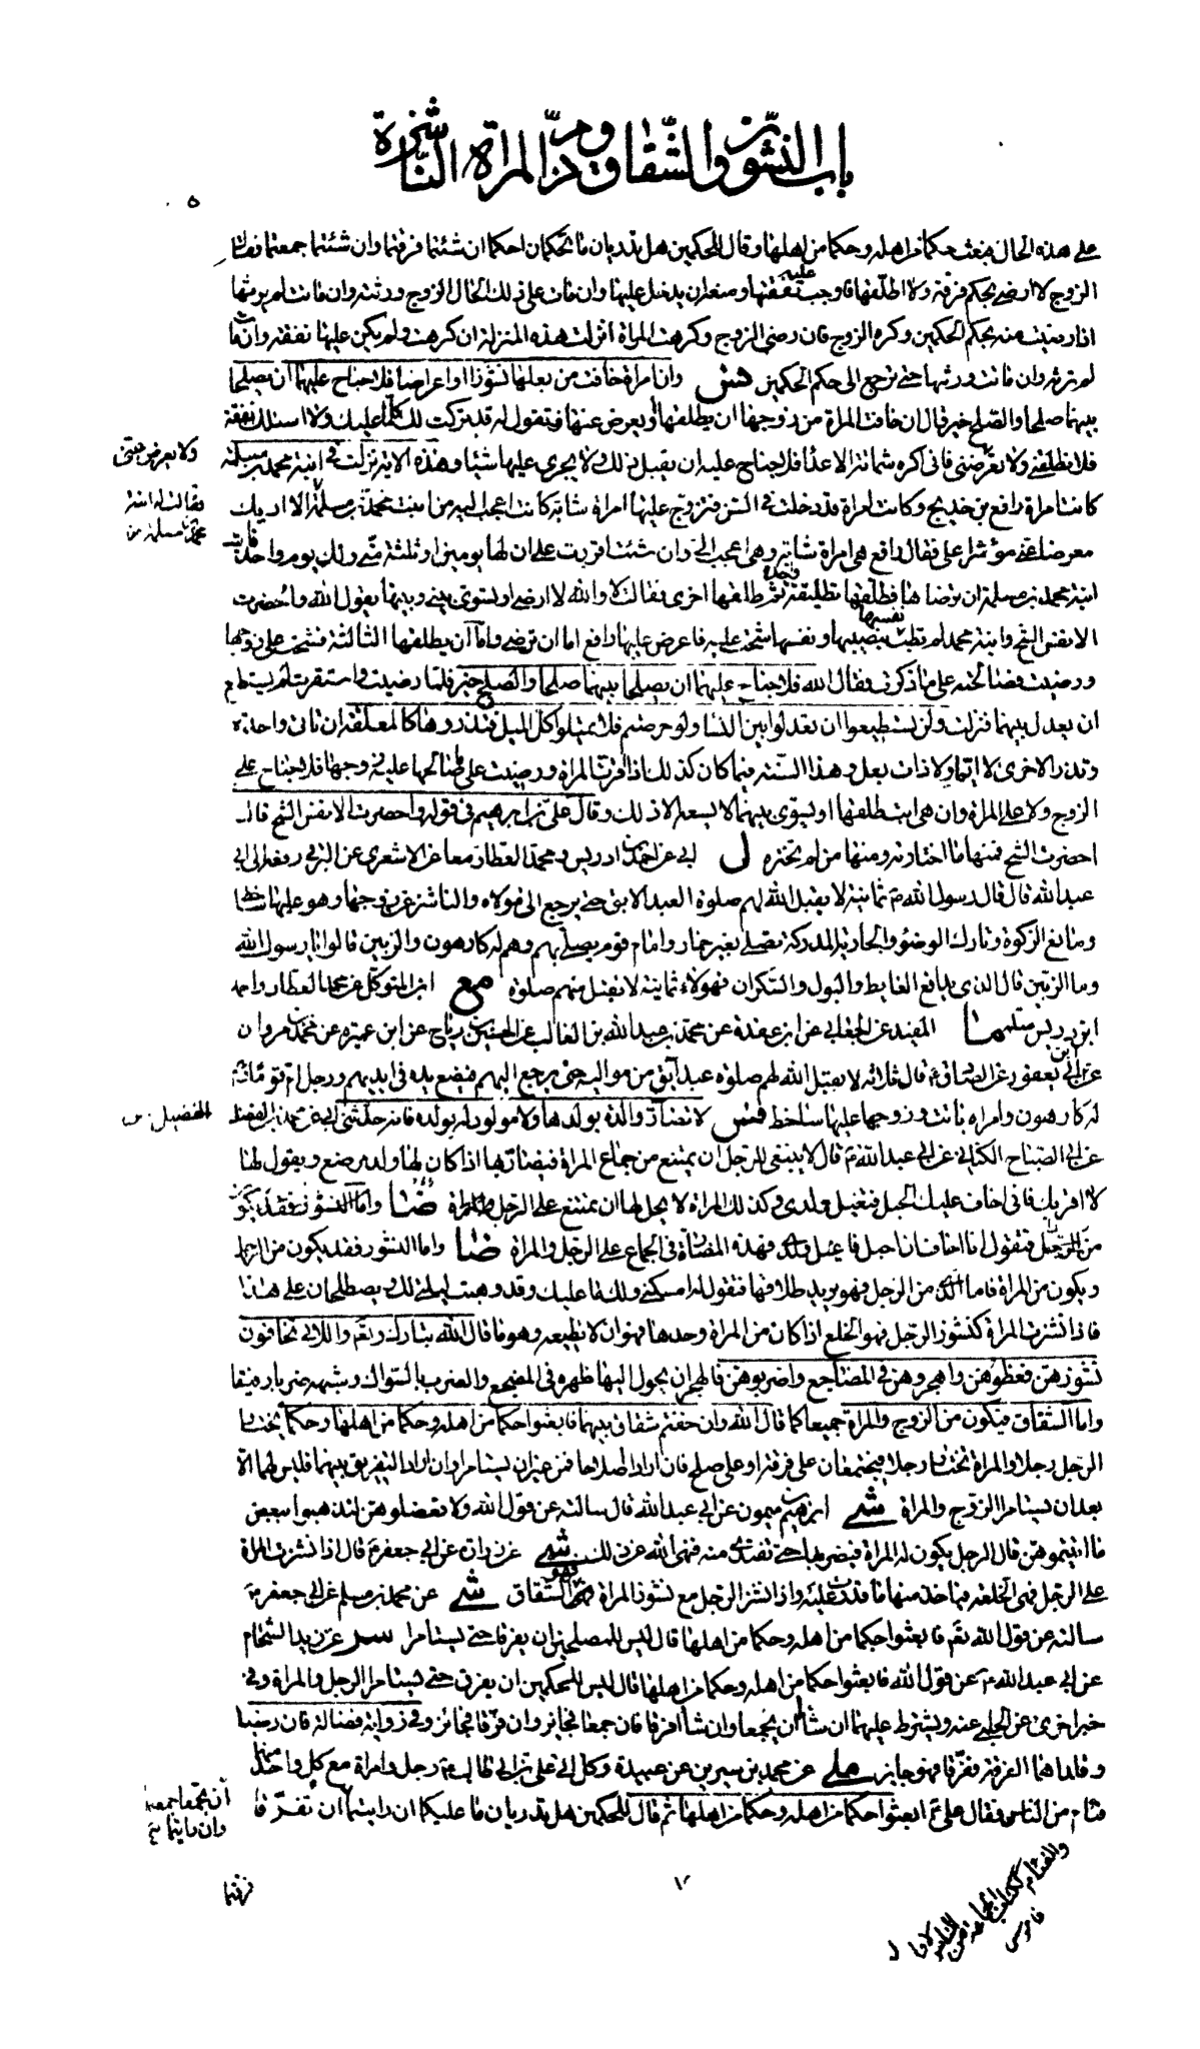 باب النشوز والشقاق وذم المراة الناشزة
على هذه الحال فبعث حكما من اهله وحكما من اهلها وقال للحكمين هل تدريان ما تحكمان احكما ان شئتما فرقتما وان شئتما جمعتما فقال
الزوج لا ارضى بحكم فرقة ولا اطلقها فاوجب عليه نفقتها ومنعه ان يدخل عليها وان مات على ذلك الحال الزوج ورثته وان ماتت لم يرثها
اذا رضيت منه بحكم الحكمين وكره الزوج فان رضى الزوج وكرهت المراة انزلت هذه المنزلة ان كرهت ولم يكن عليها نفقة وان مات
لم ترثه وان ماتت ورثها حتى ترجع الى حكم الحكمين وان امراة خافت من بعلها نشوزا او اعراضا فلا جناح عليهما ان يصلحا
بينهما صلحا والصلح خير قال ان خافت المراة من زوجها ان يطلقها او يعرض عنها فتقول له قد تركت لك كلما عليك ولا اسئلك نفقة
فلا تطلقنى ولا تعرض عنى فانى اكره شماتة الاعداء فلا جناح عليه ان يقبل ذلك ولا يجرى عليها شيئا وهذه الاية نزلت فى ابنة محمد بن مسلمة
كانت امراة رافع بن خديج وكانت امراة قد دخلت فى السن فتزوج عليها امراة شابة كانت اعجب اليه من ابنت محمد بن مسلمة الا اريك
معرضا عنى مؤثرا على فقال رافع هى امراة شابة وهى اعجب الى وان شئت اقررت على ان لها يومين او ثلثة منى ولك يوم واحد فابت
ابنة محمد بن مسلمة ان ترضاها فطلقها تطليقة واحدة ثم طلقها اخرى فقالت لا والله لا ارضى او تسوى بينى وبينها يقول الله واحضرت
الانفس الشح وابنة محمد لم تطب نفسها بنصيبها ونفسها شحت عليه فاعرض عليها رافع اما ان ترضى واما ان يطلقها الثالثة فشحت على زوجها
ورضيت فصالحته على ما ذكرت فقال الله فلا جناح عليهما ان يصلحا بينهما صلحا والصلح خير فلما رضيت واستقرت لم يستطع
ان يعدل بينهما فنزلت ولن تستطيعوا ان تعدلوا بين النسا ولو حرصتم فلا تميلوا كل الميل فتذروها كالمعلقة ان تاتى واحدة
وتذر الاخرى لا ايم ولا ذات بعل وهذا السنة فيما كان كذلك اذا اقرت المراة ورضيت على ما صالحها عليه زوجها فلا جناح على
الزوج ولا على المراة وان هى ابت طلقها او يسوى بينهما لا يسعه الا ذلك وقال على بن ابراهيم فى قوله واحضرت الانفس الشح قال
احضرت الشح فمنها ما اختارته ومنها من لم تختره ل ابى عن احمد بن ادريس ومحمد العطار معا عن الاشعرى عن البرقى رفعه الى ابى
عبد الله قال قال رسول الله ص ثمانية لا يقبل الله لهم صلوة العبد الابق حتى يرجع الى مولاه والناشز عن زوجها وهو عليها ساخط
ومانع الزكوة وتارك الوضوء والجارية المدركة تصلى بغير خمار وامام قوم يصلى بهم وهم له كارهون والزبين قالوا يا رسول الله
وما الزبين قال الذى يدافع الغايط والبول والسكران فهولاء ثمانية لا تقبل منهم صلوة مع ابن المتوكل عن محمد العطار واحمد
ابن ادريس مثله ما المفيد عن الجعابى عن ابن عقدة عن محمد بن عبد الله بن الغالب عن الحسين بن رياح عن ابن عميرة عن محمد بن مروان
عن ابن ابى يعفور عن الصادق ع قال ثلاثة لا يقبل الله لهم صلوة عبد آبق من مواليه حتى يرجع اليهم فيضع يده فى ايديهم ورجل ام قوما وهم
له كارهون وامراة باتت وزوجها عليها ساخط فس لا تضار والدة بولدها ولا مولود له بولده فانه حدثنى ابى عن محمد بن الفضيل
عن ابى الصباح الكنانى عن ابى عبد الله ع قال لا ينبغى للرجل ان يمتنع من جماع المراة فيضار بها اذا كان لها ولد مرضع ويقول لها
لا اقربك فانى اخاف عليك الحبل فتغيل ولدى وكذلك المراة لا يحل لها ان تمتنع على الرجل واما النشوز فقد يكون
من الرجل فتقول انا اخاف ان احبل فاغيل ولدى فهذه المضارة فى الجماع على الرجل والمراة ضا واما النشوز فقد يكون من الرجل
ويكون من المراة فاما الذى من الرجل فهو يريد طلاقها فتقول له امسكنى ولك ما عليك وقد وهبت ليلتى لك ويصطلحان على هذا
فاذا نشزت المراة كنشوز الرجل فهو الخلع اذا كان من المراة وحدها فهو ان لا تطيعه وهو ما قال الله تبارك وتعم واللاتى تخافون
نشوزهن فعظوهن واهجروهن فى المضاجع واضربوهن فالهجران يحول اليها ظهره فى المضجع والضرب بالسواك وشبهه ضربا رفيقا
واما الشقاق فيكون من الزوج والمراة جميعا كما قال الله وان خفتم شقاق بينهما فابعثوا حكما من اهله وحكما من اهلها وحكما يختار
الرجل رجلا والمراة تختار رجلا فيجتمعان على فرقة او على صلح فان ارادا اصلاحا فمن غير ان يستامرا وان ارادا التفريق بينهما فليس لهما الا
بعد ان يستامرا الزوج والمراة شى ابرهيم بن ميمون عن ابى عبد الله قال سالته عن قول الله ولا تعضلوهن لتذهبوا ببعض
ما اتيتموهن قال الرجل يكون له المراة فيضربها حتى تفتدى منه فنهى الله عن ذلك شى عن زرارة عن ابى جعفر ع قال اذا نشزت المراة
على الرجل فهى الخلعة فياخذ منها ما قدرت عليه واذا نشز الرجل مع نشوز المراة فهو الشقاق شى عن محمد بن مسلم عن ابى جعفر ع
سالته عن قول الله تعم فابعثوا حكما من اهله وحكما من اهلها قال ليس للمصلحين ان يفرقا حتى يستامرا سر عن زيد الشحام
عن ابى عبد الله ع عن قول الله فابعثوا حكما من اهله وحكما من اهلها قال ليس للحكمين ان يفرقا حتى يستامرا الرجل والمراة وفى
خبر اخرى عن الحلبى عنه ويشترط عليهما ان شاءا ان يجمعا وان شاءا فرقا فان جمعا فجائز وان فرقا فجائز وفى رواية فضالة فان رضيا
وقلداهما الفرقة ففرقا فهو جايز على عن محمد بن سيرين عن عبيدة وكل اتى على بن ابى طالب ع رجل وامراة مع كل واحد منهما
فئام من الناس فقال على ع ابعثوا حكما من اهله وحكما من اهلها ثم قال للحكمين هل تدريان ما عليكما ان رايتما ان تفرقا
ولا يعرض عنى
فقالت له ابنة
محمد بن مسلمة
الفضيل
ان تجمعا جمعتما
وان رايتما
فرقتما
والفئام ككتاب الجماعة من الناس
قاموس